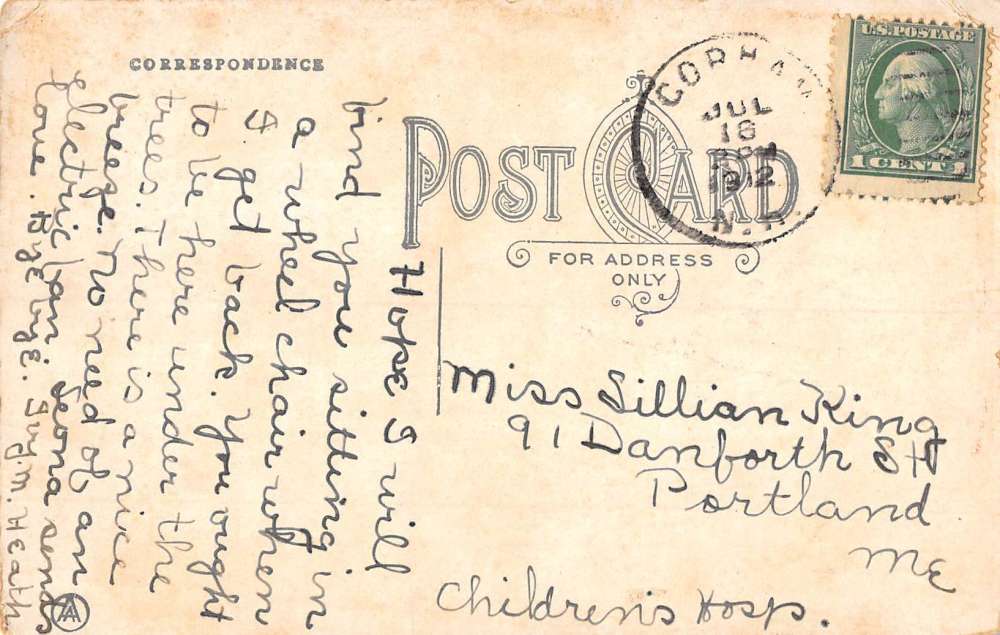 CORRESPONDENCE
Hope I will
find you sitting in
a wheel chair when
I get back. You ought
to be here under the
trees. There is a nice
breeze. No need of an
electric fan. Leona sends
love. Bye bye. Guy. M. Heath
POST CARD
FOR ADDRESS
ONLY
GORHAM
JUL
16
1912
N.H.
U.S. POSTAGE
1 CENT 1
Miss Lillian King
91 Danforth St
Portland
Me
Children's Hosp.